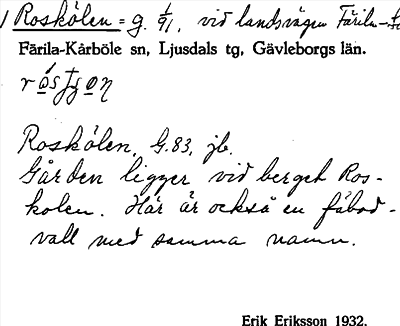 Roskölen = g. 1/91, vid landsvägen Färila-
Färila-Kårböle sn, Ljusdals tg, Gävleborgs län.
Roskölen, G.83, jb.
Gården ligger vid berget Ros-
kolen. Här är också en fäbod-
vall med samma namn.
Erik Eriksson 1932.